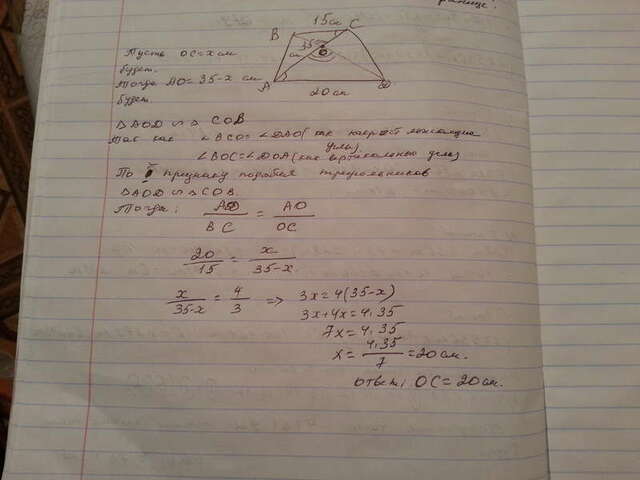 15 см
B
C
35
см
O
A
D
20 см
Пусть OC=x см
будет.
Тогда AO=35-x см
будет.
△AOD ∽ △ COB
Так как ∠BCO=∠DAO (как накрест лежащие
углы)
∠BOC=∠DOA (как вертикальные углы)
По признаку подобия треугольников
△AOD ∽ △COB.
Тогда:
AD/BC = AO/OC
20/15 = x/35-x
x/35-x = 4/3 => 3x=4(35-x)
3x+4x=4.35
7x=4.35
x= 4.35/7 =20 см.
ответ: OC=20 см.